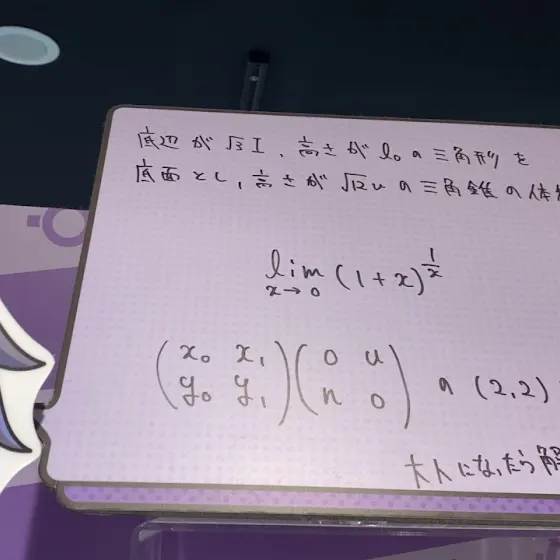 底辺が√3 I、高さが l₀ の三角形を
底面とし、高さが √12 u の三角錐の体
lim (1+x)^(1/x)
x→0
(x₀ x₁) (0 u)
(y₀ y₁) (n 0) の (2,2)
大人になったら解